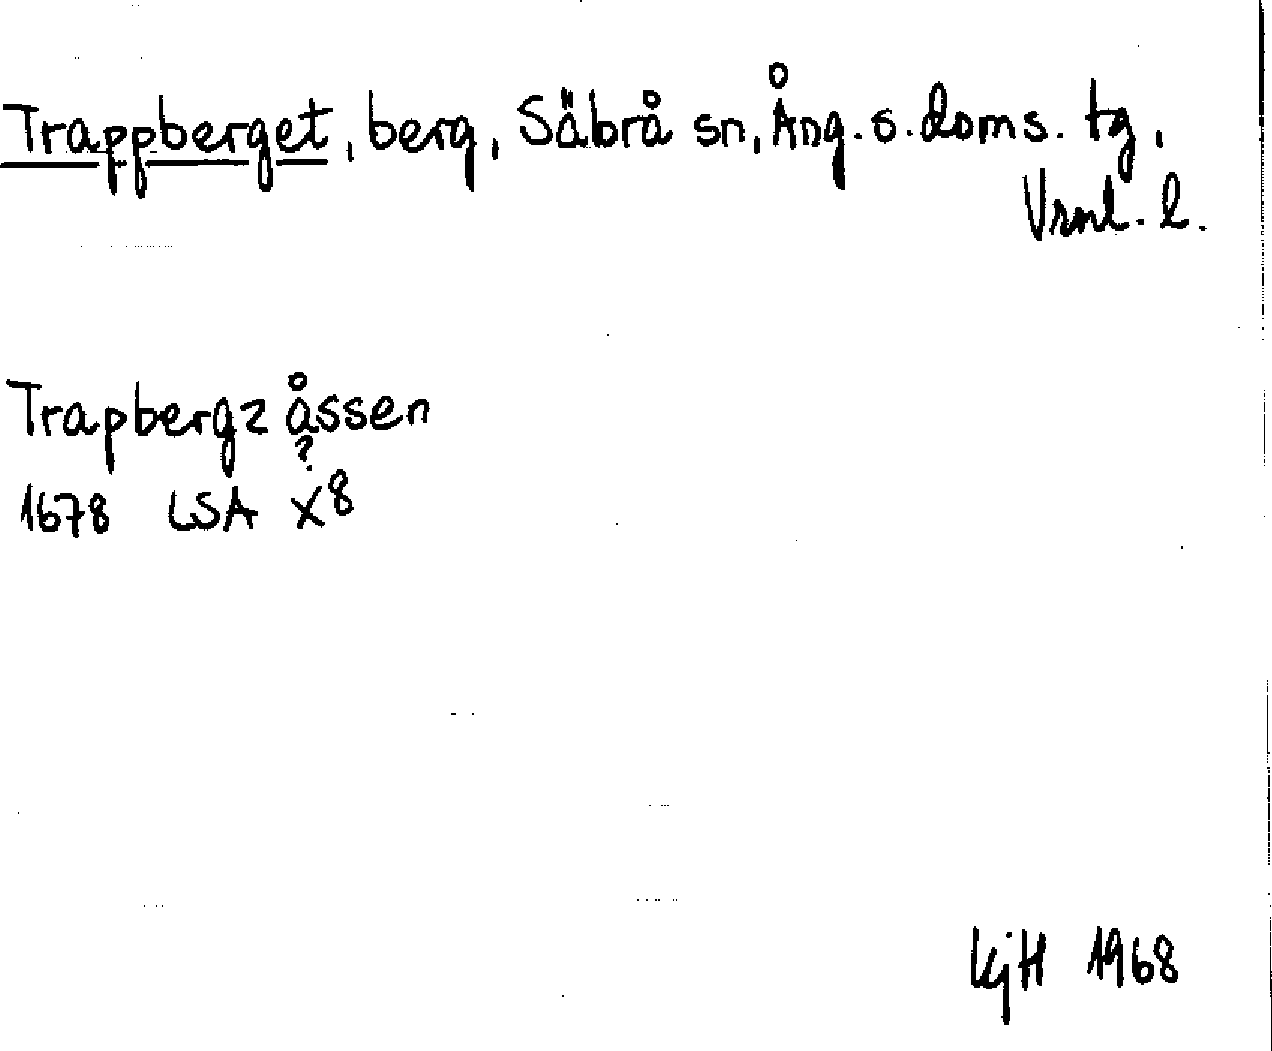 Trappberget, berg, Säbrå sn, Ång. s. doms. tg,
Vrnl. l.
Trapbergz åssen
?
1678 LSA X8
KjH 1968